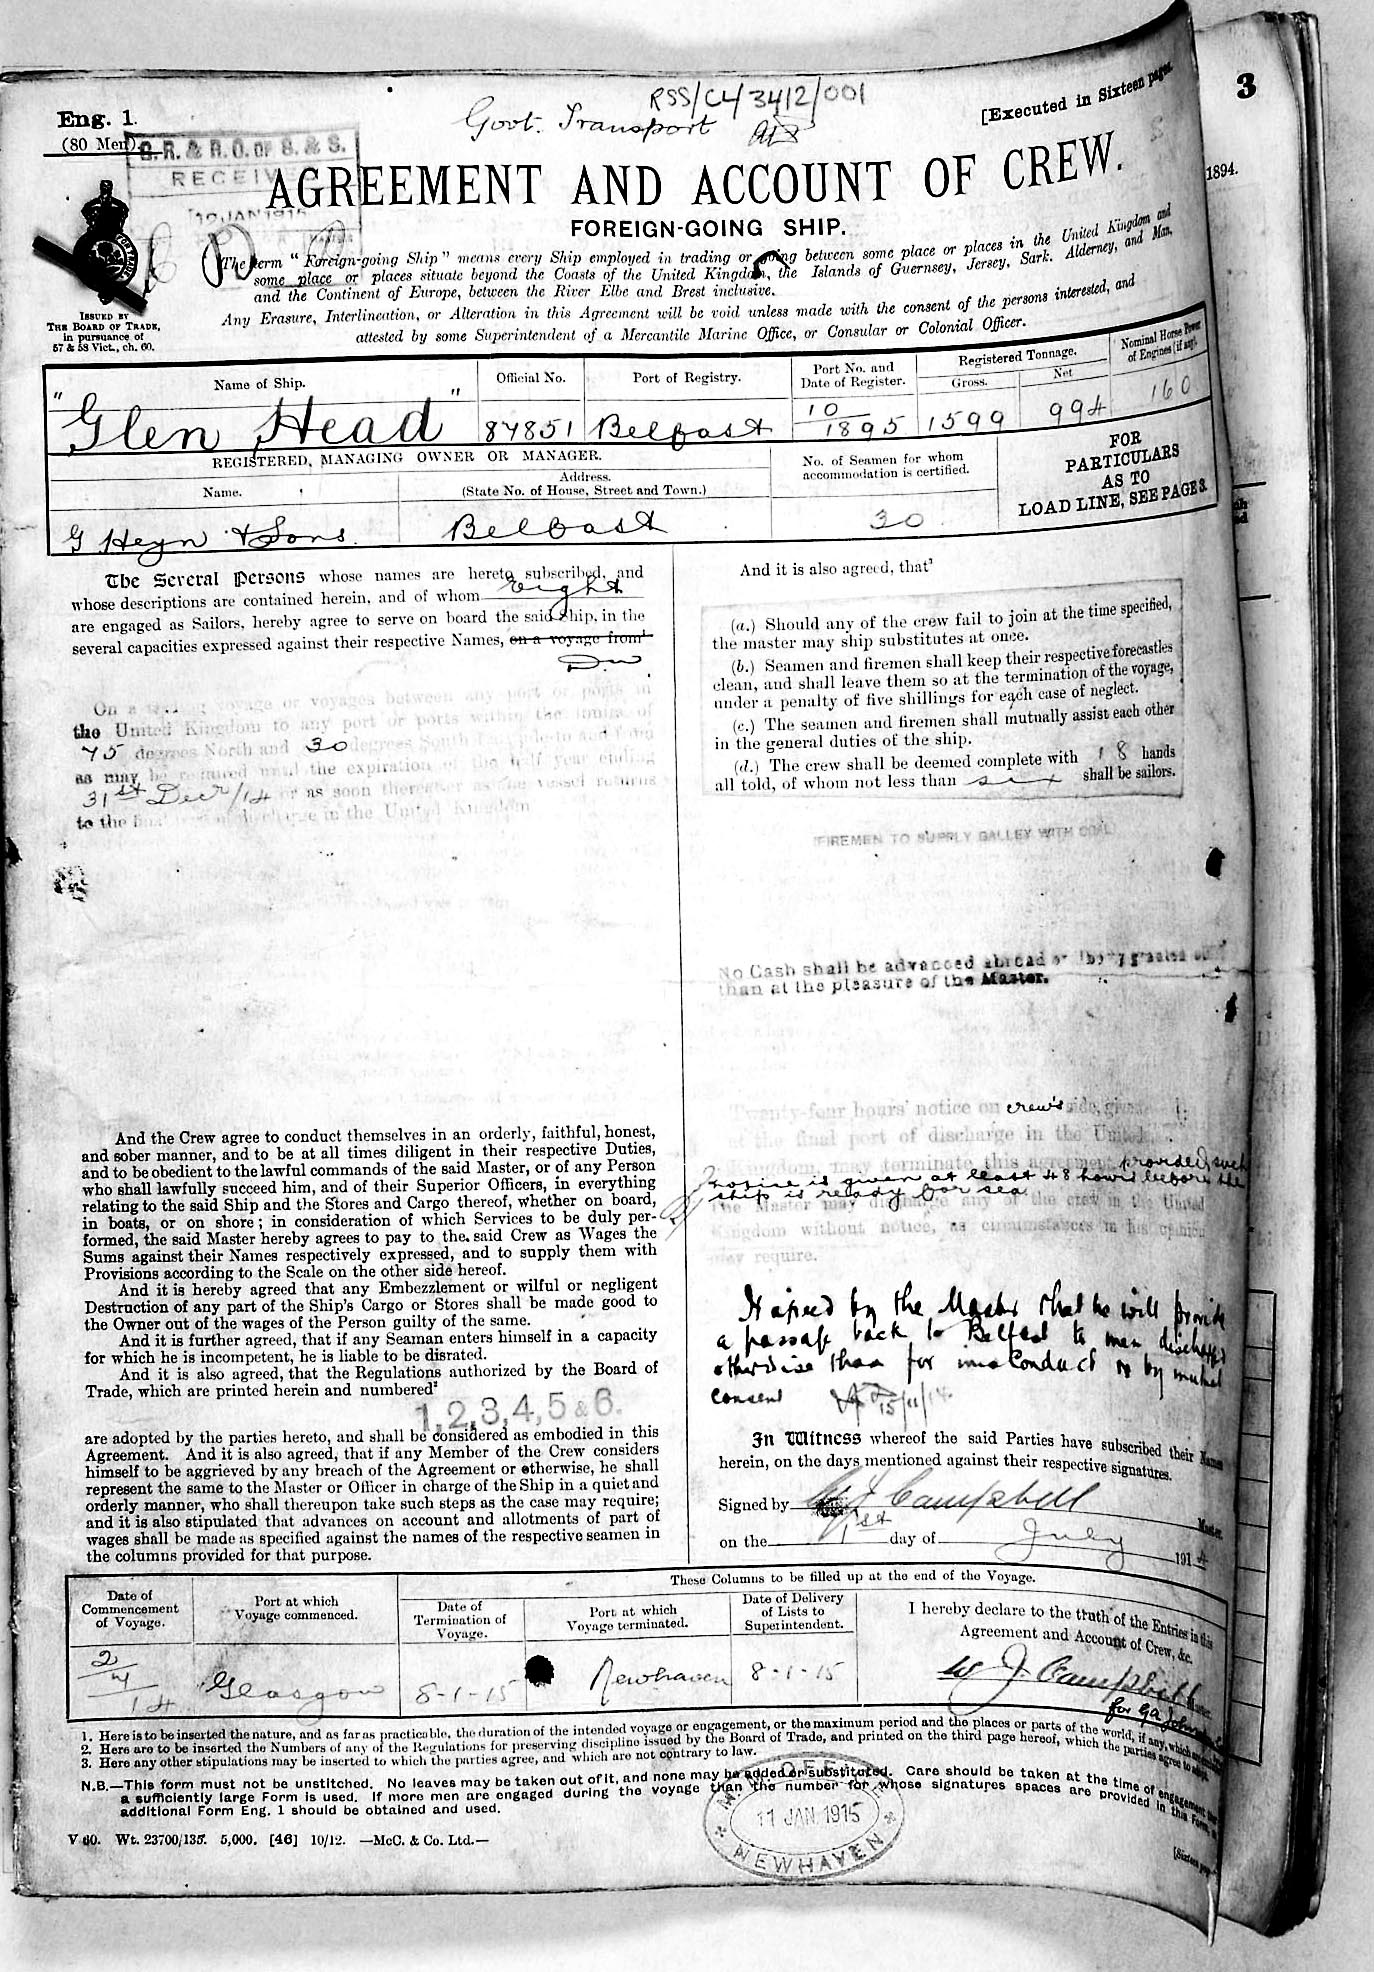 RSS/CL/3412/001
Govt. Transport
[Executed in Sixteen pages.
3
Eng. 1.
(80 Men)
S. R. & R. O. OF S. & S.
RECEIVE
JAN 1915
AGREEMENT AND ACCOUNT OF CREW.
1894.
FOREIGN-GOING SHIP.
The term "Foreign-going Ship" means every Ship employed in trading or going between some place or places in the United Kingdom and
some place or places situate beyond the Coasts of the United Kingdom, the Islands of Guernsey, Jersey, Sark, Alderney, and Man,
and the Continent of Europe, between the River Elbe and Brest inclusive.
Any Erasure, Interlineation, or Alteration in this Agreement will be void unless made with the consent of the persons interested, and
attested by some Superintendent of a Mercantile Marine Office, or Consular or Colonial Officer.
ISSUED BY
THE BOARD OF TRADE,
in pursuance of
57 & 58 Vict., ch. 60.
Name of Ship.
Official No.
Port of Registry.
Port No. and
Date of Register.
Registered Tonnage.
Gross.
Net
Nominal Horse Power
of Engines (if any).
"Glen Head"
87851
Belfast
10/1895
1599
994
160
REGISTERED, MANAGING OWNER OR MANAGER.
Name.
Address.
(State No. of House, Street and Town.)
No. of Seamen for whom
accommodation is certified.
FOR
PARTICULARS
AS TO
LOAD LINE, SEE PAGE 3.
G Heyn & Sons.
Belfast
30
The Several Persons whose names are hereto subscribed, and
whose descriptions are contained herein, and of whom eight
are engaged as Sailors, hereby agree to serve on board the said Ship, in the
several capacities expressed against their respective Names, on a voyage from
On a voyage or voyages between any port or ports in
the United Kingdom to any port or ports within the limits of
75 degrees North and 30 degrees South
as may be required until the expiration of the half year ending
31st Decr/14 or as soon thereafter as the vessel returns
to the final port of discharge in the United Kingdom
And the Crew agree to conduct themselves in an orderly, faithful, honest,
and sober manner, and to be at all times diligent in their respective Duties,
and to be obedient to the lawful commands of the said Master, or of any Person
who shall lawfully succeed him, and of their Superior Officers, in everything
relating to the said Ship and the Stores and Cargo thereof, whether on board,
in boats, or on shore; in consideration of which Services to be duly per-
formed, the said Master hereby agrees to pay to the said Crew as Wages the
Sums against their Names respectively expressed, and to supply them with
Provisions according to the Scale on the other side hereof.
And it is hereby agreed that any Embezzlement or wilful or negligent
Destruction of any part of the Ship's Cargo or Stores shall be made good to
the Owner out of the wages of the Person guilty of the same.
And it is further agreed, that if any Seaman enters himself in a capacity
for which he is incompetent, he is liable to be disrated.
And it is also agreed, that the Regulations authorized by the Board of
Trade, which are printed herein and numbered²
1, 2, 3, 4, 5 & 6.
are adopted by the parties hereto, and shall be considered as embodied in this
Agreement. And it is also agreed, that if any Member of the Crew considers
himself to be aggrieved by any breach of the Agreement or otherwise, he shall
represent the same to the Master or Officer in charge of the Ship in a quiet and
orderly manner, who shall thereupon take such steps as the case may require;
and it is also stipulated that advances on account and allotments of part of
wages shall be made as specified against the names of the respective seamen in
the columns provided for that purpose.
And it is also agreed, that³
(a.) Should any of the crew fail to join at the time specified,
the master may ship substitutes at once.
(b.) Seamen and firemen shall keep their respective forecastles
clean, and shall leave them so at the termination of the voyage,
under a penalty of five shillings for each case of neglect.
(c.) The seamen and firemen shall mutually assist each other
in the general duties of the ship.
(d.) The crew shall be deemed complete with 18 hands
all told, of whom not less than six shall be sailors.
FIREMEN TO SUPPLY GALLEY WITH COAL
No Cash shall be advanced abroad or liberty granted other
than at the pleasure of the Master.
Twenty-four hours' notice on crew's side, given
at the final port of discharge in the United
Kingdom, may terminate this agreement provided such
notice is given at least 48 hours before the
ship is ready for sea
The Master may discharge any of the crew in the United
Kingdom without notice, as circumstances in his opinion
may require.
It agreed by the Master that he will provide
a passage back to Belfast to men discharged
otherwise than for misconduct or by mutual
consent 15/11/14
In Witness whereof the said Parties have subscribed their Names
herein, on the days mentioned against their respective signatures.
Signed by W J Campbell Master.
on the 1st day of July 1914
These Columns to be filled up at the end of the Voyage.
Date of
Commencement
of Voyage.
Port at which
Voyage commenced.
Date of
Termination of
Voyage.
Port at which
Voyage terminated.
Date of Delivery
of Lists to
Superintendent.
I hereby declare to the truth of the Entries in this
Agreement and Account of Crew, &c.
2/7/14
Glasgow
8-1-15
Newhaven
8-1-15
W J Campbell Master.
1. Here is to be inserted the nature, and as far as practicable, the duration of the intended voyage or engagement, or the maximum period and the places or parts of the world, if any, which
2. Here are to be inserted the Numbers of any of the Regulations for preserving discipline issued by the Board of Trade, and printed on the third page hereof, which the parties agree to adopt.
3. Here any other stipulations may be inserted to which the parties agree, and which are not contrary to law.
N.B.—This form must not be unstitched. No leaves may be taken out of it, and none may be added or substituted. Care should be taken at the time of engagement that
a sufficiently large Form is used. If more men are engaged during the voyage than the number for whose signatures spaces are provided in this Form, a
additional Form Eng. 1 should be obtained and used.
V 60. Wt. 23700/135. 5,000. [46] 10/12. —McC. & Co. Ltd.—
[Sixteen
M.M. OFFICE
11 JAN 1915
NEWHAVEN